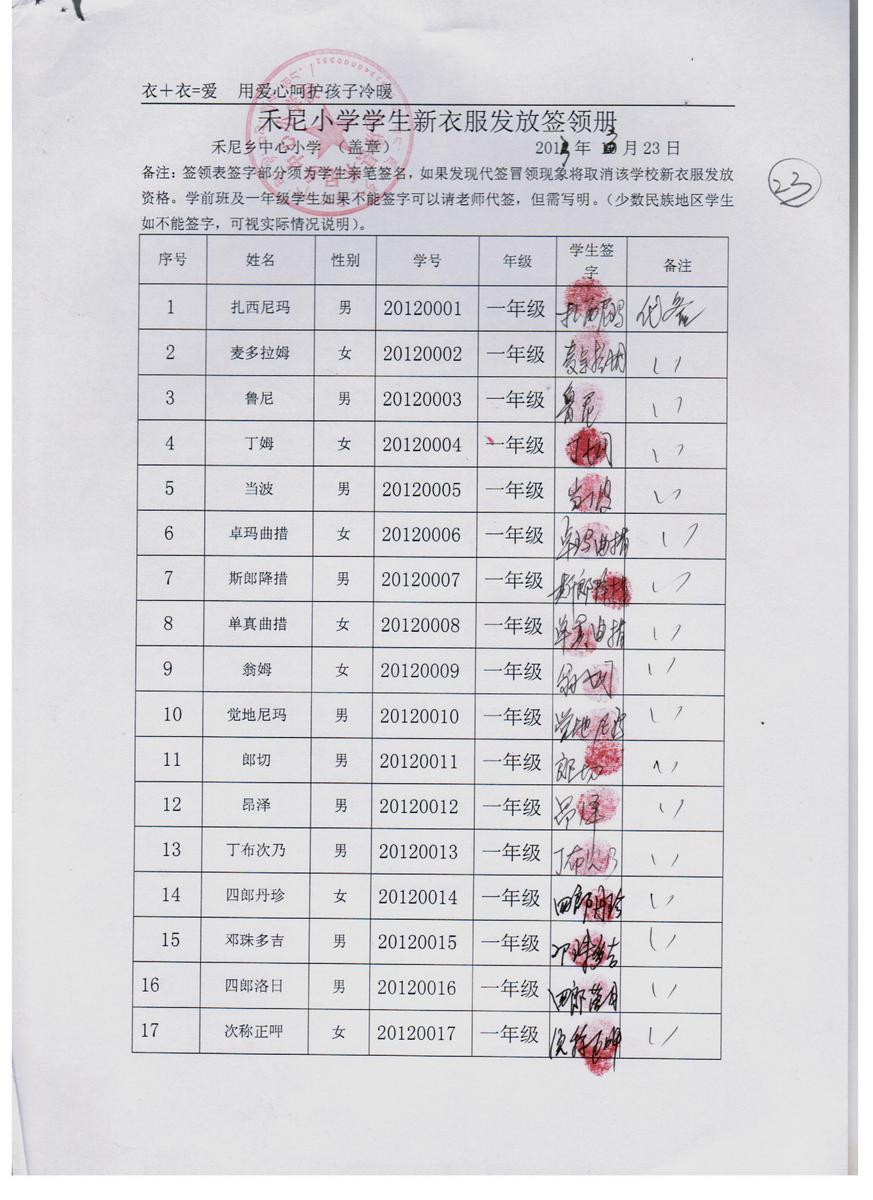 衣+衣=爱 用爱心呵护孩子冷暖
禾尼小学学生新衣服发放签领册
禾尼乡中心小学 （盖章） 2013 年 3 月 23 日
备注：签领表签字部分须为学生亲笔签名，如果发现代签冒领现象将取消该学校新衣服发放
资格。学前班及一年级学生如果不能签字可以请老师代签，但需写明。（少数民族地区学生
如不能签字，可视实际情况说明）。
23
序号 姓名 性别 学号 年级 学生签字 备注
1 扎西尼玛 男 20120001 一年级 扎西尼玛 代签
2 麦多拉姆 女 20120002 一年级 麦多拉姆 〃
3 鲁尼 男 20120003 一年级 鲁尼 〃
4 丁姆 女 20120004 一年级 丁姆 〃
5 当波 男 20120005 一年级 当波 〃
6 卓玛曲措 女 20120006 一年级 卓玛曲措 〃
7 斯郎降措 男 20120007 一年级 斯郎降措 〃
8 单真曲措 女 20120008 一年级 单真曲措 〃
9 翁姆 女 20120009 一年级 翁姆 〃
10 觉地尼玛 男 20120010 一年级 觉地尼玛 〃
11 郎切 男 20120011 一年级 郎切 〃
12 昂泽 男 20120012 一年级 昂泽 〃
13 丁布次乃 男 20120013 一年级 丁布次乃 〃
14 四郎丹珍 女 20120014 一年级 四郎丹珍 〃
15 邓珠多吉 男 20120015 一年级 邓珠多吉 〃
16 四郎洛日 男 20120016 一年级 四郎洛日 〃
17 次称正呷 女 20120017 一年级 次称正呷 〃